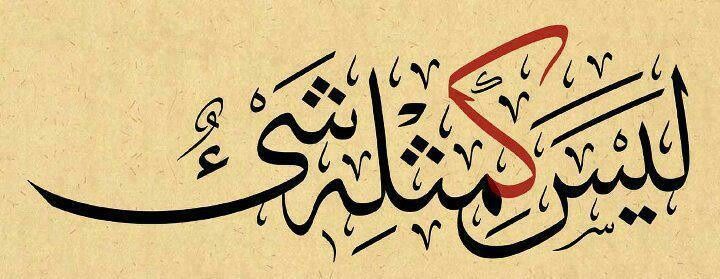 لَيْسَ كَمِثْلِهِ شَىْءٌ